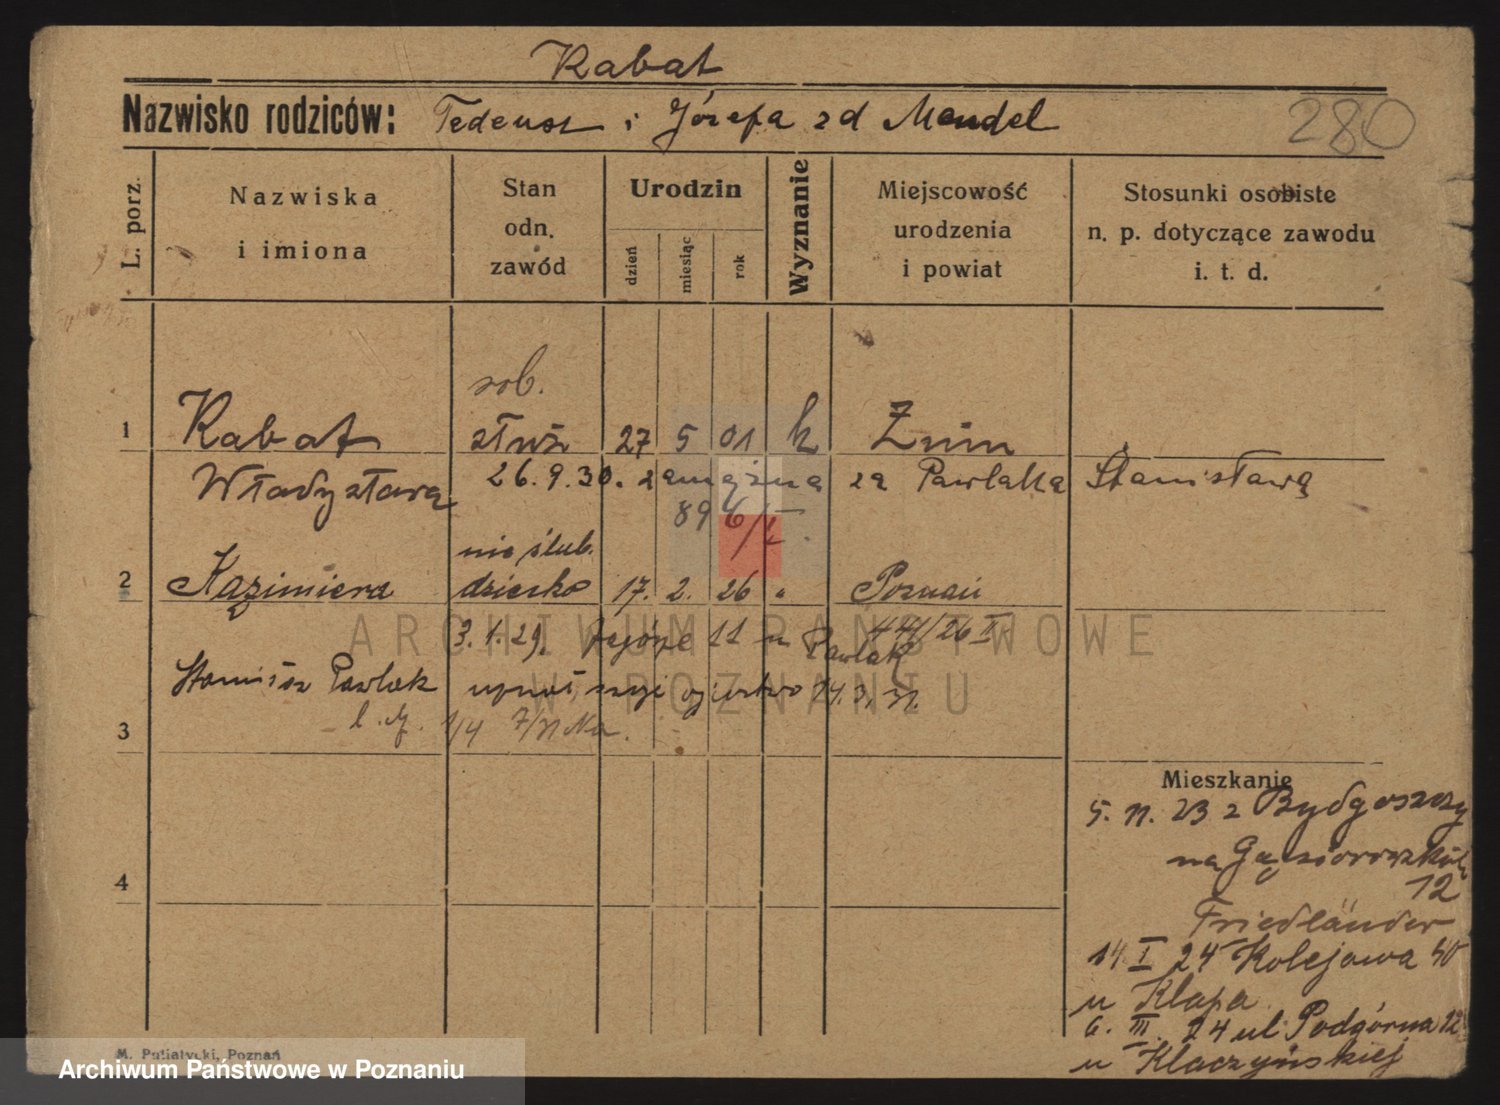 Rabat
Nazwisko rodziców: Tedeusz i Józefa zd Mendel
280
L. porz.
Nazwiska i imiona
Stan odn. zawód
Urodzin
dzień
miesiąc
rok
Wyznanie
Miejscowość urodzenia i powiat
Stosunki osobiste n. p. dotyczące zawodu i. t. d.
rob.
1 Rabat służ 27 5 01 k Żnin
Władysława 26.9.30. zamężna za Pawlaka Stanisława
896/I
nie ślub.
2 Kazimiera dziecko 17. 2. 26 " Poznań
3.1.29. 11 u Pawlak
Stanisław Pawlak 14.3.31.
3
4
Mieszkanie
5. 11. 23 z Bydgoszczy
na Gąsiorowskich
12
Friedländer
14. I 24 Kolejowa 40
u Klapa
6. III. 24 ul Podgórna 12
u Klaczyńskiej
M. Putiatycki, Poznań
ARCHIWUM PAŃSTWOWE
W POZNANIU
Archiwum Państwowe w Poznaniu